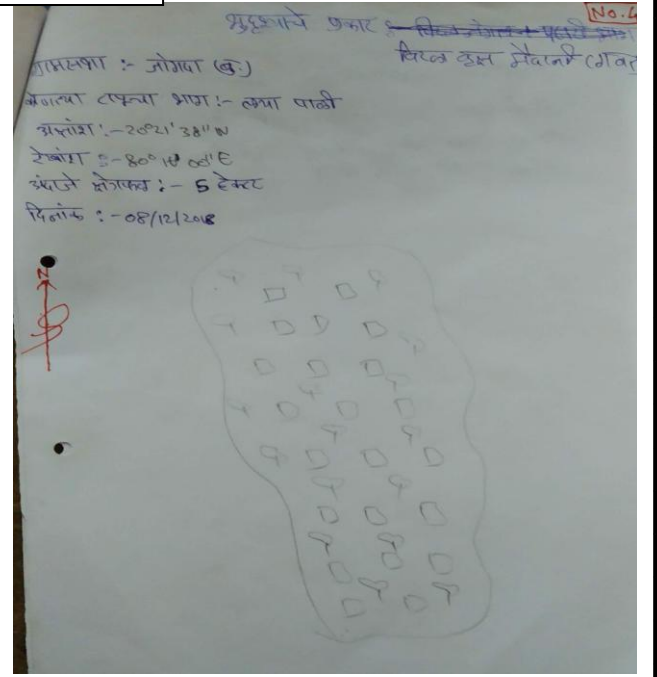 No. 4
भुदृश्याचे प्रकार :-
विरळ वृक्ष मैदानी (गवत
ग्रामसभा :- जोगणा (बु.)
भाग :- लया पाळी
अक्षांश :- 20°21'38" N
रेखांश :- 80° 00" E
अंदाजे क्षेत्रफळ :- 5 हेक्टर
दिनांक :- 08/12/2018
N